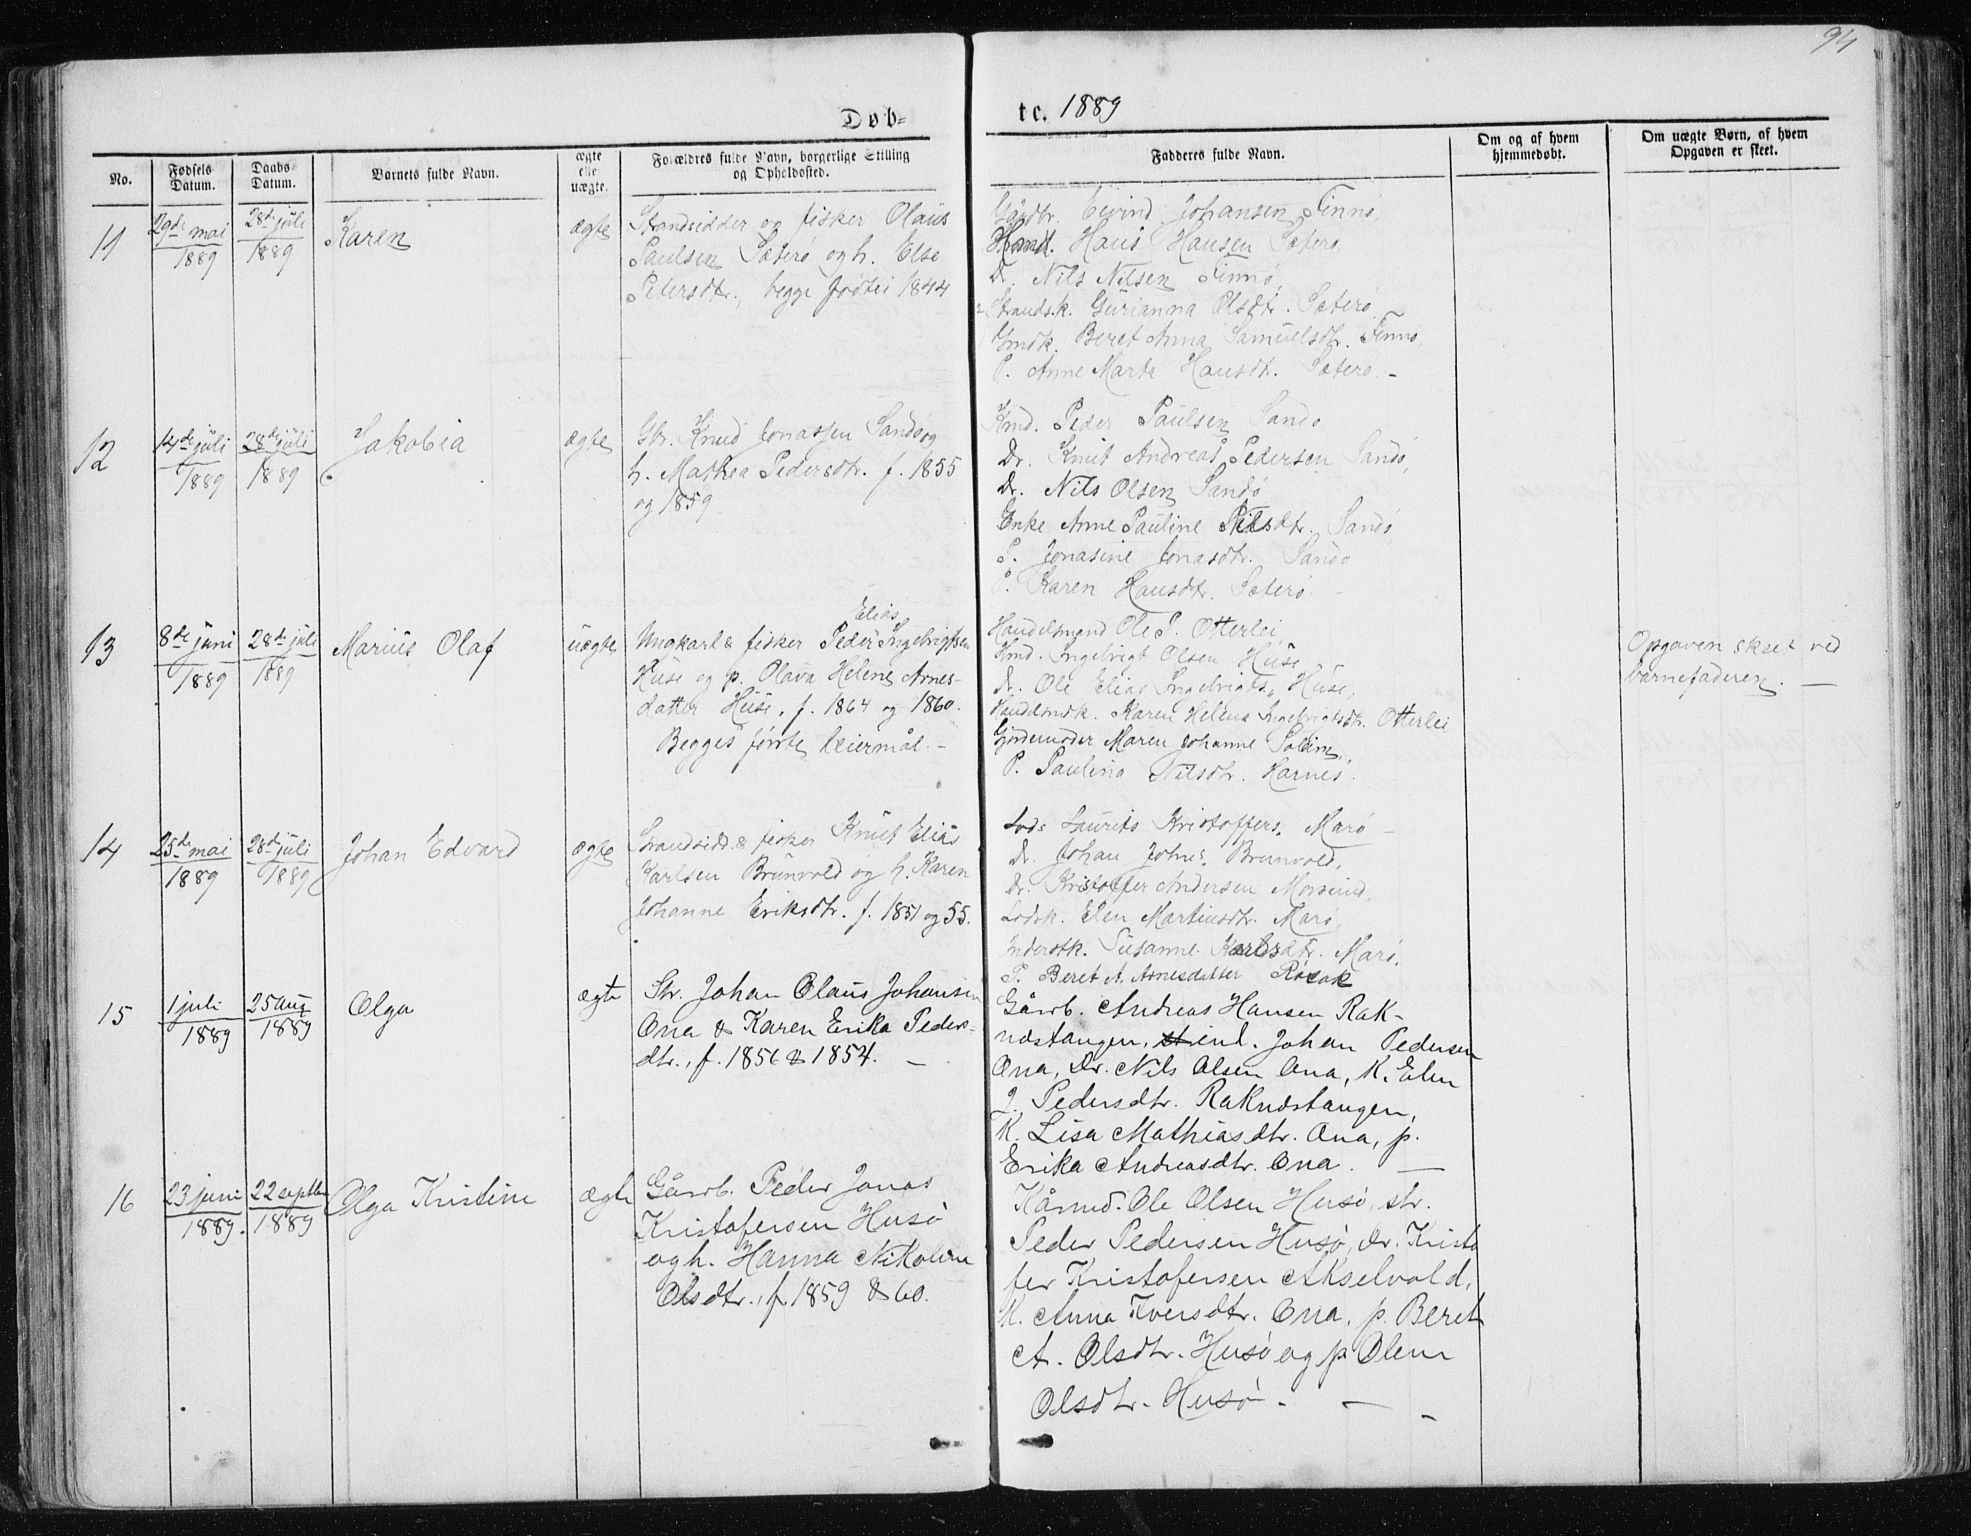 94
Døb=
tc. 1889
No.
Fødsels Datum.
Daabs Datum.
Barnets fulde Navn.
ægte elle uægte.
Forældres fulde Navn, borgerlige Stilling
og Opholdssted.
Fadderes fulde Navn.
Om og af hvem
hjemmedøbt.
Om uægte Børn, af hvem
Opgaven er skeet.
11
29de mai
1889
28de juli
1889
Karen
ægte
Strandsidder og fisker Olaus
Paulsen Sæterø og h. Else
Petersdtr., begge fødte i 1844
Gårdbr. Eivind Johansen Finnø,
Hans Hansen Sæterø
Dr. Nils Nilsen Finnø,
Strandsk. Gurianna Olsdtr. Sæterø
Gmdk. Beret Anna Samuelsdtr. Finnø,
P. Anne Marta Hansdtr. Sæterø. -
12
14de juli
1889
28de juli
1889
Jakobia
ægte
Gbr. Knud Jonassen Sandø og
h. Mathea Pedersdtr. f. 1855
og 1859
Kmd. Peder Paulsen Sandø
Dr. Knut Andreas Pedersen Sandø,
Dr. Nils Olsen Sandø
Enke Anne Pauline Nilsdtr. Sandø
P. Jonasine Jonasdtr. Sandø
P. Karen Hansdtr. Sæterø. -
13
8de juni
1889
28de juli
1889
Marius Olaf
uægte
Elias
Ungkarl & fisker Peder Ingebrigtsen
Huse og p. Olava Helene Arnes-
datter Huse, f. 1864 og 1860.
Begges første leiermål. -
Handelsmand Ole P. Otterlei,
Kmd. Ingebrigt Olsen Huse,
Dr. Ole Elias Ingebrigts. Huse,
Handelsmdk. Karen Helena Ingebrigtsdtr. Otterlei
Gjordemoder Maren Johanne Solem,
P. Paulina Nilsdtr. Harnes.
Opgaven skeet ved
barnefaderen. —
14
25de mai
1889
28de juli
1889
Johan Edvard
ægte
Strandsidd. & fisker Knut Elias
Karlsen Brunvold og h. Karen
Johanne Eriksdtr. f. 1851 og 55.
Lods Laurits Kristoffers. Marø -
Dr. Johan Johns. Brunvold,
Dr. Kristoffer Andersen Morsund,
Lodsk. Elen Martinusdtr. Marø,
Inderstk. Susanne Karlsdtr. Marø,
P. Beret A. Arnesdatter Røsok
15
1 juli
1889
25 aug
1889
Olga
ægte
Str. Johan Olaus Johansen
Ona & Karen Erika Peders-
dtr., f. 1856 & 1854. —
Gårb. Andreas Hansen Rak-
næstangen, ind. Johan Pedersen
Ona, Dr. Nils Olsen Ona, K. Elen
J. Pedersdtr. Raknæstangen,
K. Lisa Mathiasdtr. Ona, p.
Erika Andreasdtr. Ona. —
16
23 juni
1889.
22 septbr
1889
Olga Kristine
ægte
Gårb. Peder Jonas
Kristofersen Husø
og h. Hanna Nikoline
Olsdtr., f. 1859 & 60.
Kårmd. Ole Olsen Husø, str.
Peder Pedersen Husø, dr. Kristo
fer Kristofersen Akselvold,
K. Anna Iversdtr. Ona, p. Beret
A. Olsdtr. Husø og p Olene
Olsdtr. Husø. —